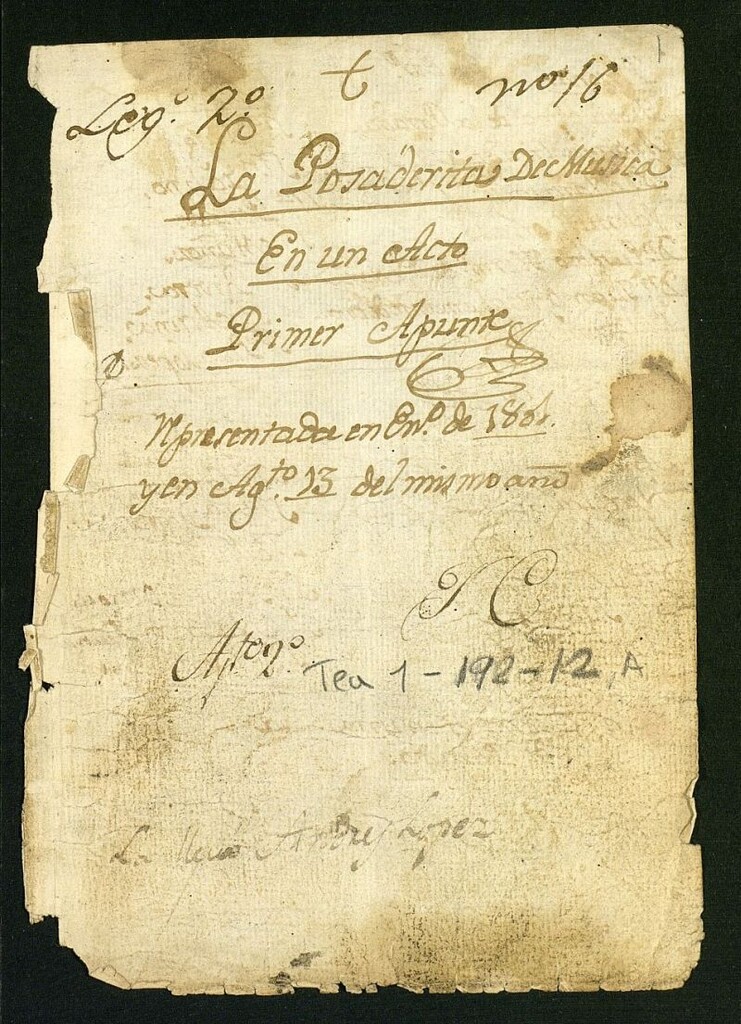 Leg.º 2.º
nº 16
La Posaderita De Musica
En un Acto
Primer Apunte
Rpresentada en En.º de 1801.
y en Ag.to 13 del mismo año
A.to 2.º
Tea 1-192-12, A
La llevó Andres Lopez